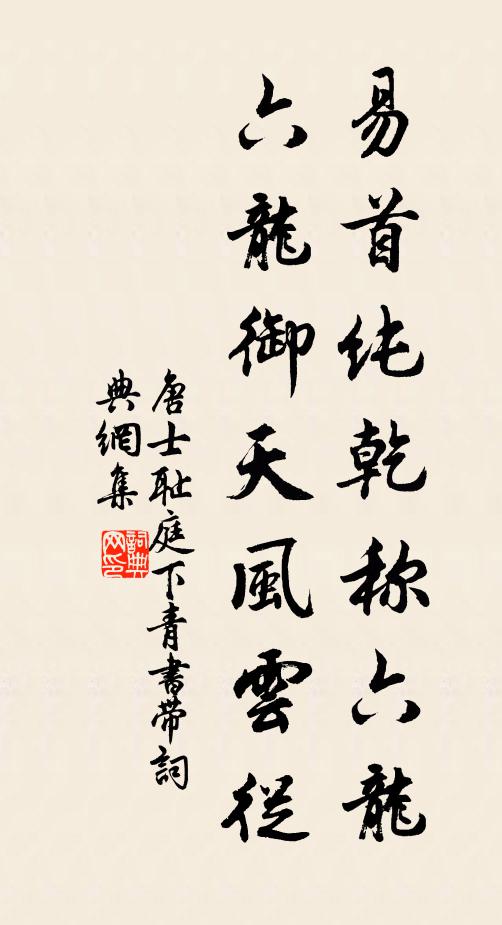 易首纯乾称六龍
六龍御天風雲從
唐士耻庭下青書带詞
典網集
詞典
网印